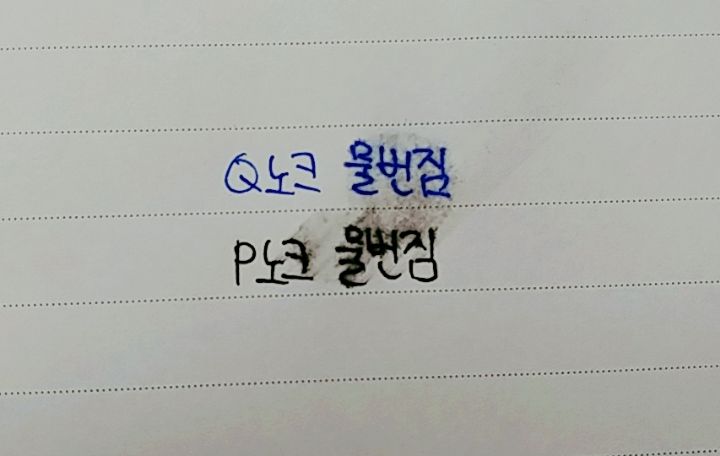 Q노크 물번짐
P노크 물번짐